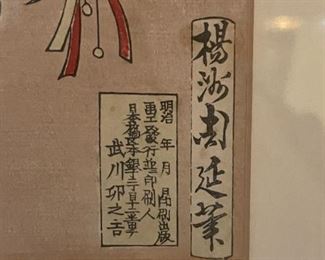 楊洲周延筆
明治 年 月 日印刷出版
画工発行兼印刷人
日本橋区本銀町二丁目十二番地
武川卯之吉